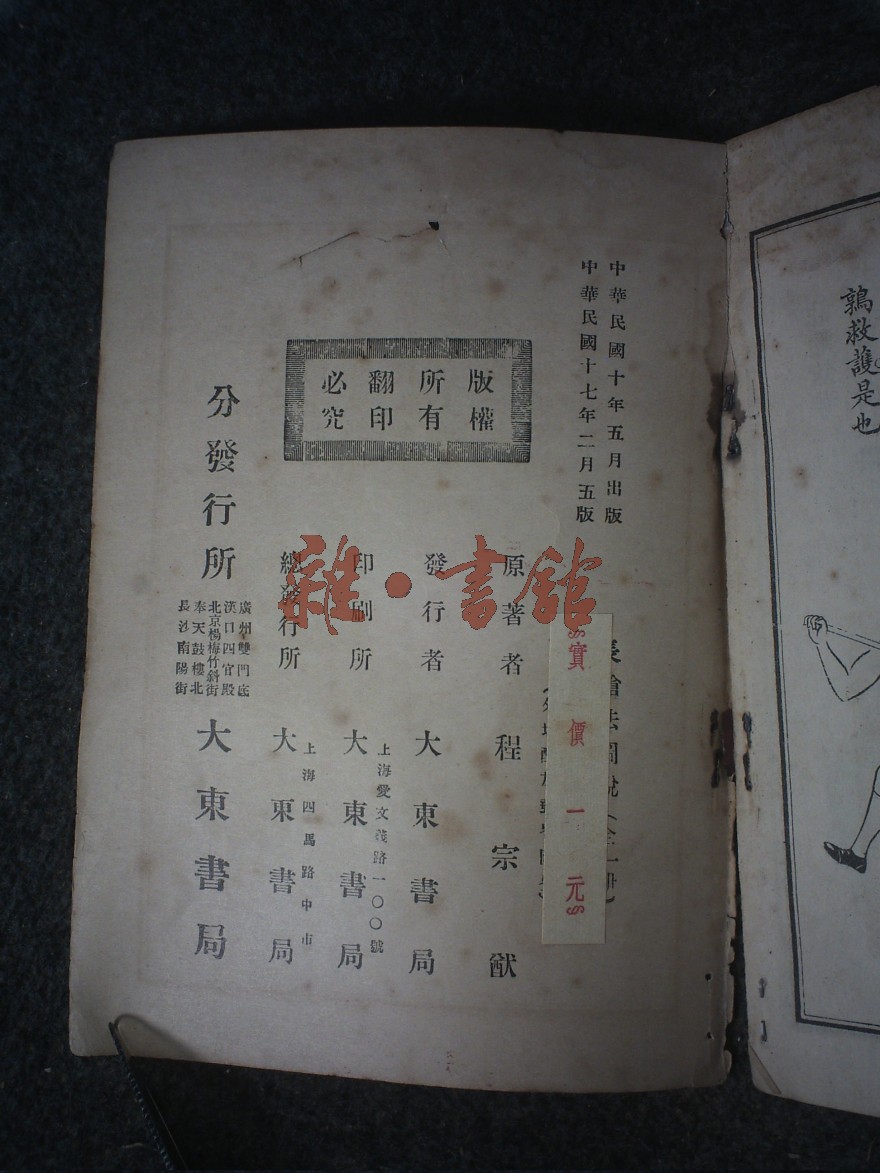 鶉救護是也
中華民國十年五月出版
中華民國十七年二月五版
長槍法圖說（全一冊）
實價一元
版權
所有
翻印
必究
原著者 程宗猷
發行者 大東書局
上海愛文義路一〇〇號
印刷所 大東書局
上海四馬路中市
總發行所 大東書局
分發行所
廣州雙門底
漢口四官殿
北京楊梅竹斜街
奉天鼓樓北
長沙南陽街
大東書局
雜·書館